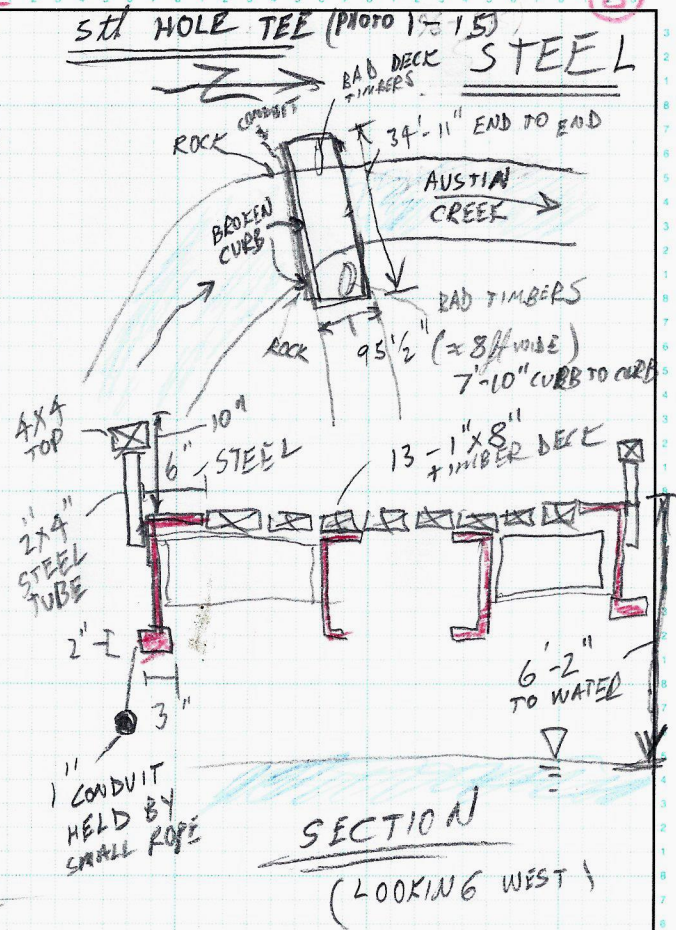 5th HOLE TEE (PHOTO 1-15)
STEEL
N
BAD DECK
TIMBERS
CONDUIT
ROCK
34'-11" END TO END
AUSTIN
CREEK
BROKEN
CURB
BAD TIMBERS
ROCK
95 1/2" (≈8ft WIDE)
7'-10" CURB TO CURB
4X4
TOP
10"
6"
STEEL
13-1"X8"
TIMBER DECK
2X4"
STEEL
TUBE
2"
3"
6'-2"
TO WATER
1" CONDUIT
HELD BY
SMALL ROPE
SECTION
(LOOKING WEST)